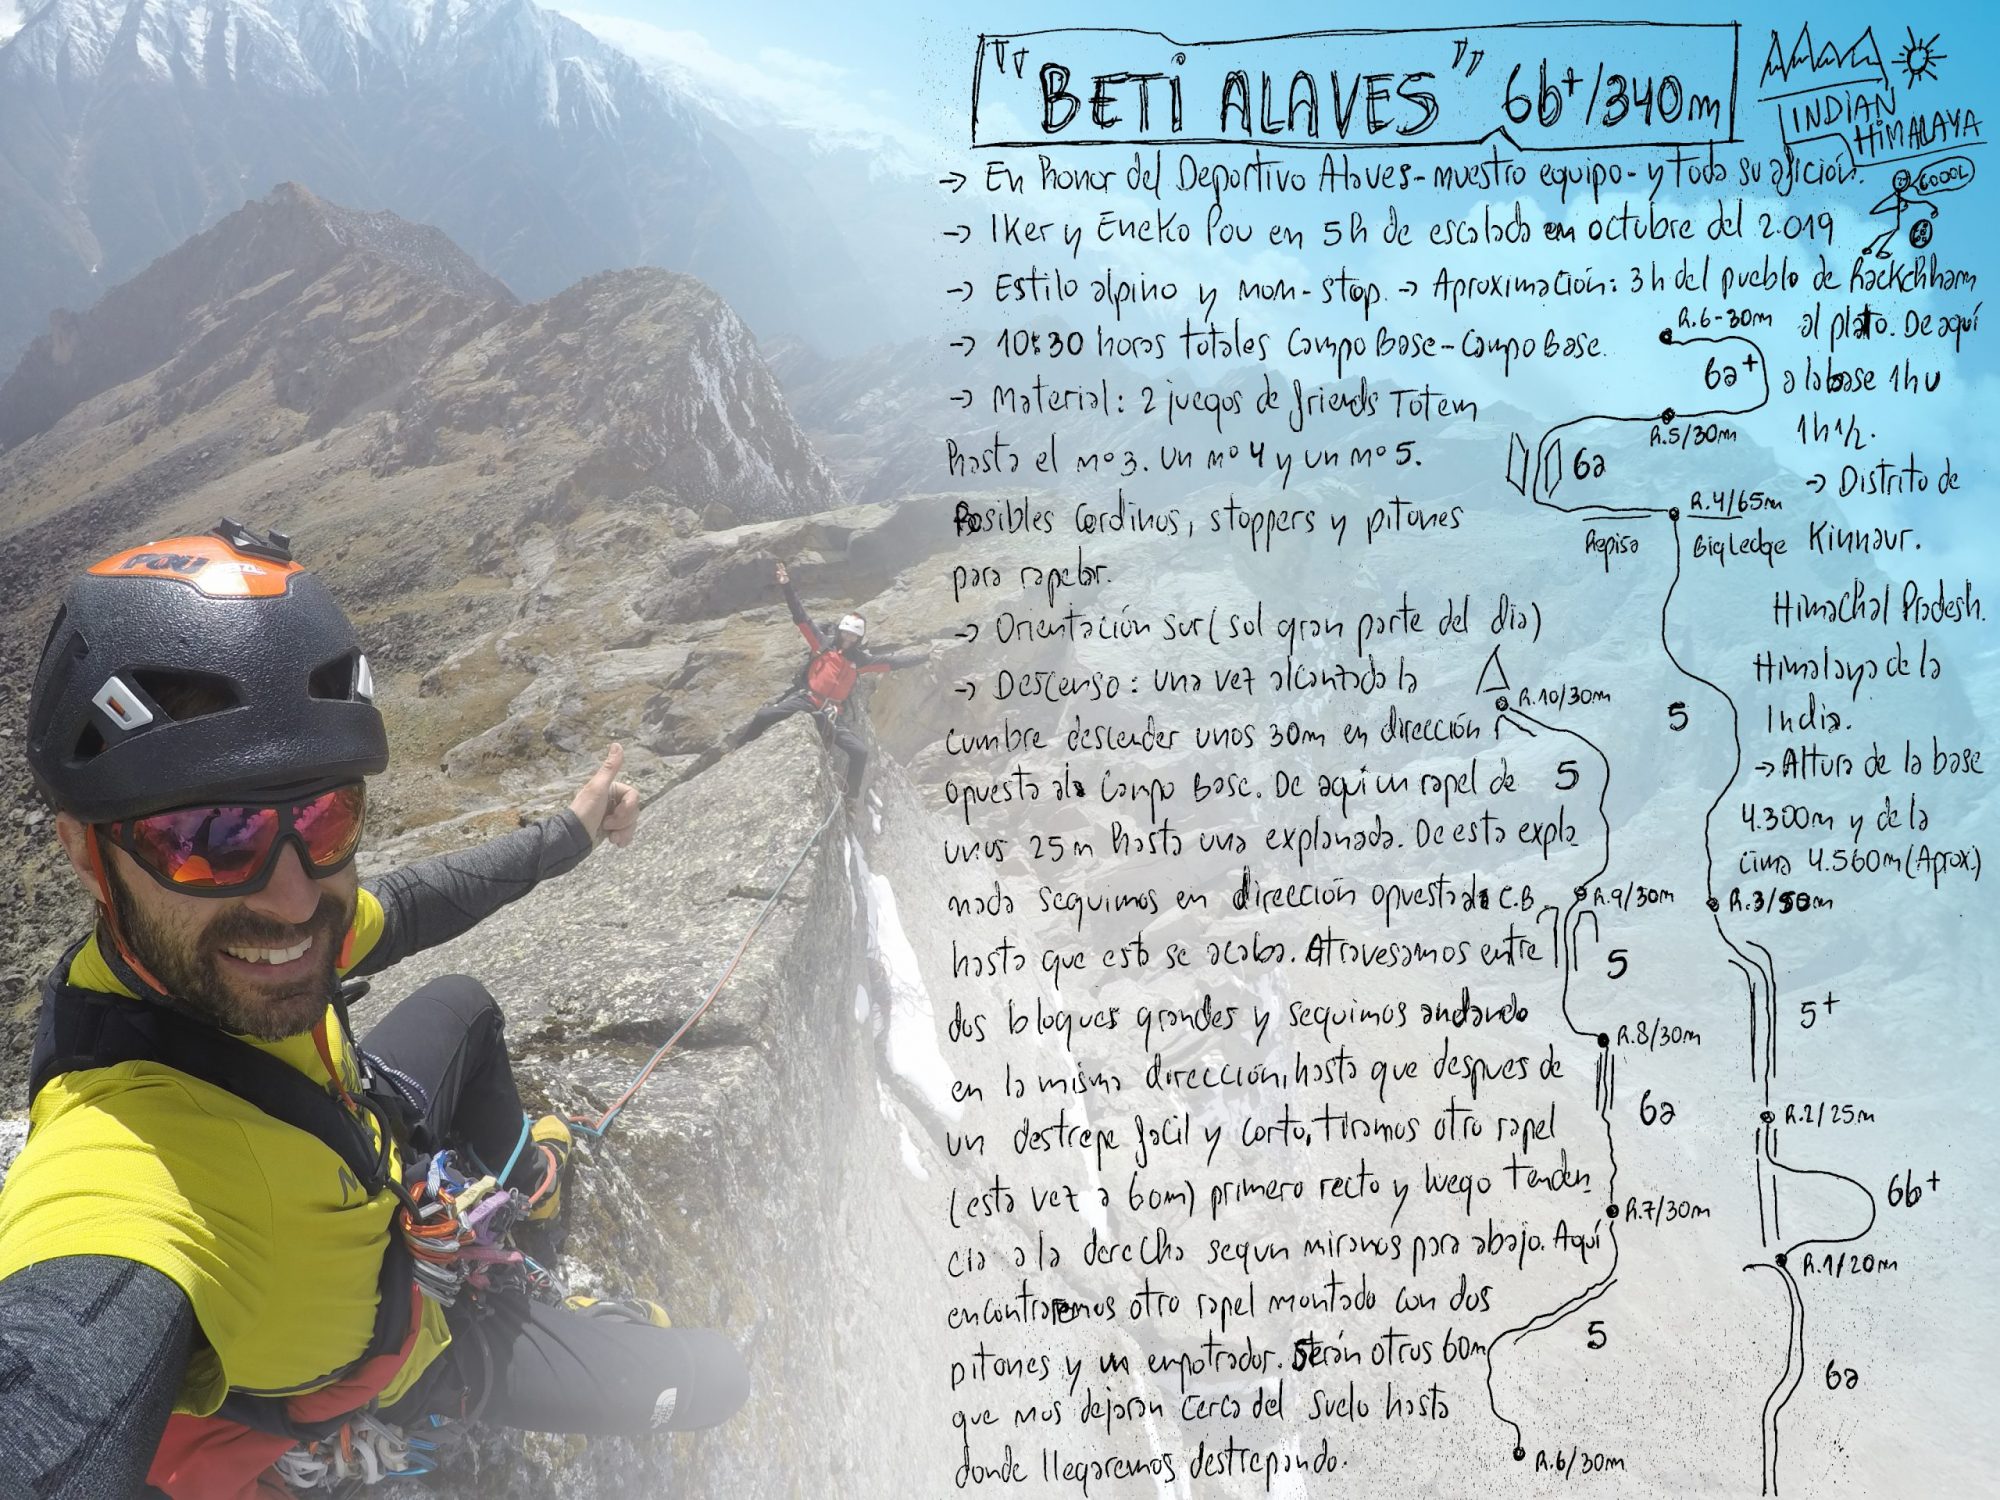 "BETI ALAVES" 6b+/340m
INDIAN
HIMALAYA
→ En honor del Deportivo Alaves - nuestro equipo - y toda su afición.
GOOOL
→ Iker y Eneko Pou en 5h de escalada en octubre del 2.019
→ Estilo alpino y non-stop. → Aproximación: 3h del pueblo de Rackchham
al plato. De aquí
a la base 1h u
1h 1/2.
→ 10:30 horas totales Campo Base - Campo Base.
→ Material: 2 juegos de friends Totem
hasta el nº 3. Un nº 4 y un nº 5.
Posibles Cordinos, stoppers y pitones
para rapelar.
→ Orientación sur (sol gran parte del dia)
→ Descenso: una vez alcanzada la
cumbre descender unos 30m en dirección
opuesta al Campo Base. De aqui un rapel de
unos 25m hasta una explanada. De esta expla
nada seguimos en dirección opuesta al C.B.
hasta que esto se acaba. Atravesamos entre
dos bloques grandes y seguimos andando
en la misma dirección, hasta que despues de
un destrepe facil y corto, tiramos otro rapel
(esta vez a 60m) primero recto y luego tenden
cia a la derecha segun miramos para abajo. Aquí
encontraremos otro rapel montado con dos
pitones y un empotrador. Serán otros 60m
que nos dejaran cerca del suelo hasta
donde llegaremos destrepando.
→ Distrito de
Kinnaur.
Himachal Pradesh.
Himalaya de la
India.
→ Altura de la base
4.300m y de la
cima 4.560m (Aprox.)
R.6-30m
6a+
R.5/30m
6a
R.4/65m
Repisa
Big Ledge
5
R.3/50m
5+
R.2/25m
6b+
R.1/20m
6a
R.10/30m
5
R.9/30m
5
R.8/30m
6a
R.7/30m
5
R.6/30m
POU